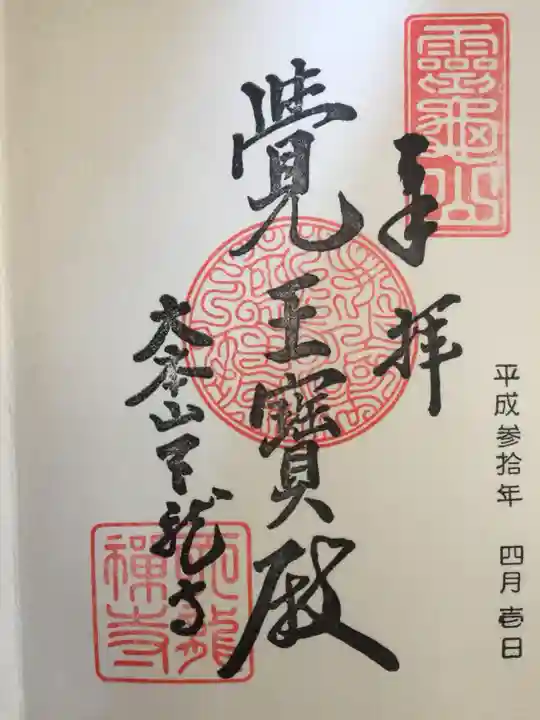 靈龜山
奉拝
平成参拾年 四月壱日
覺王寳殿
大本山天龍寺
天龍禪寺